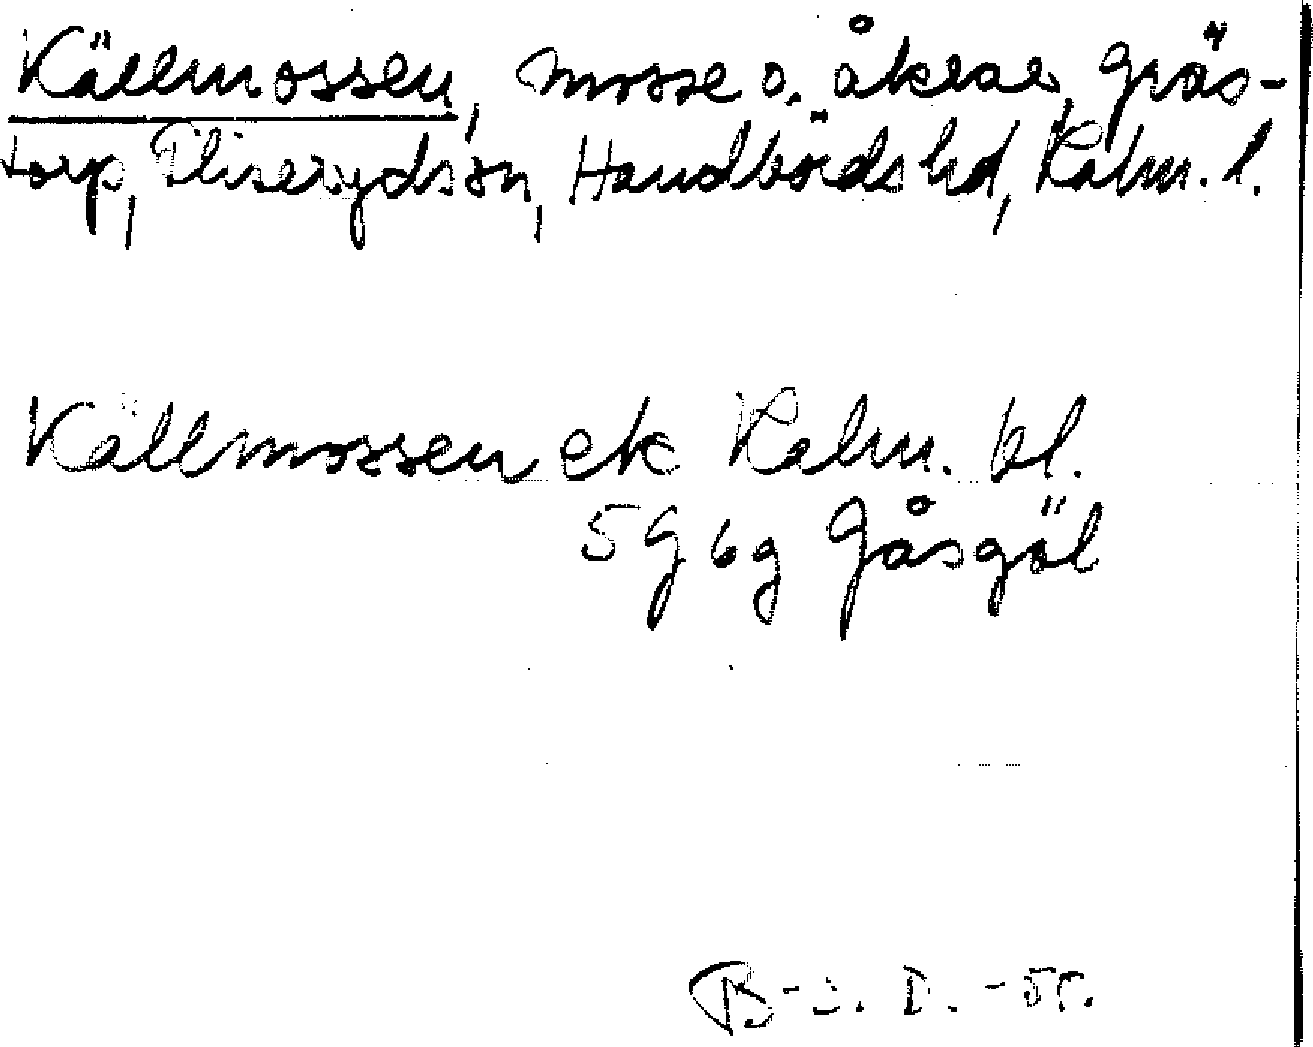 Källmossen, mosse o. åkrar, Gräs-
torp, Fliseryds sn, Handbörds hd, Kalm. l.
Källmossen ek Kalm. bl.
5 G 6 g Gåsgöl
B-s. D. -55.